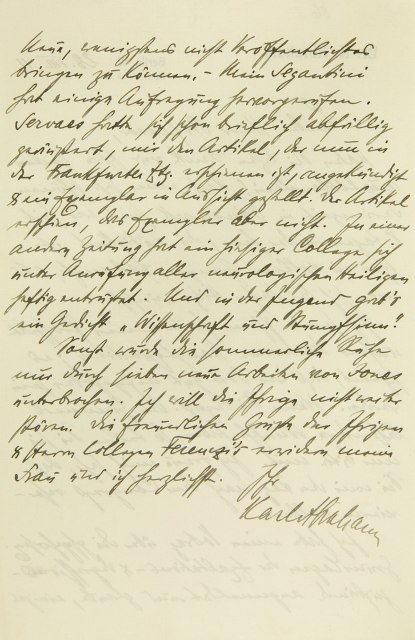 Neue, wenigstens nicht Veröffentlichtes
bringen zu können. – Mein Segantini
hat einige Aufregung hervorgerufen.
Servaes hatte sich schon brieflich abfällig
geäußert, mir den Artikel, der nun in
der Frankfurter Ztg. erschienen ist, angekündigt
& ein Exemplar in Aussicht gestellt. Der Artikel
erschien, das Exemplar aber nicht. In einer
andern Zeitung hat ein hiesiger College sich
unter Anrufung aller neurologischen Heiligen
heftig entrüstet. Und in der Jugend gab's
ein Gedicht „Wissenschaft und Stumpfsinn“.
Sonst wurde die sommerliche Ruhe
nur durch sieben neue Arbeiten von Jones
unterbrochen. Ich will die Ihrige nicht weiter
stören. Die freundlichen Grüße der Ihrigen
& Herrn Collegen Ferenczi's erwidern meine
Frau und ich herzlichst.
Ihr
Karl Abraham